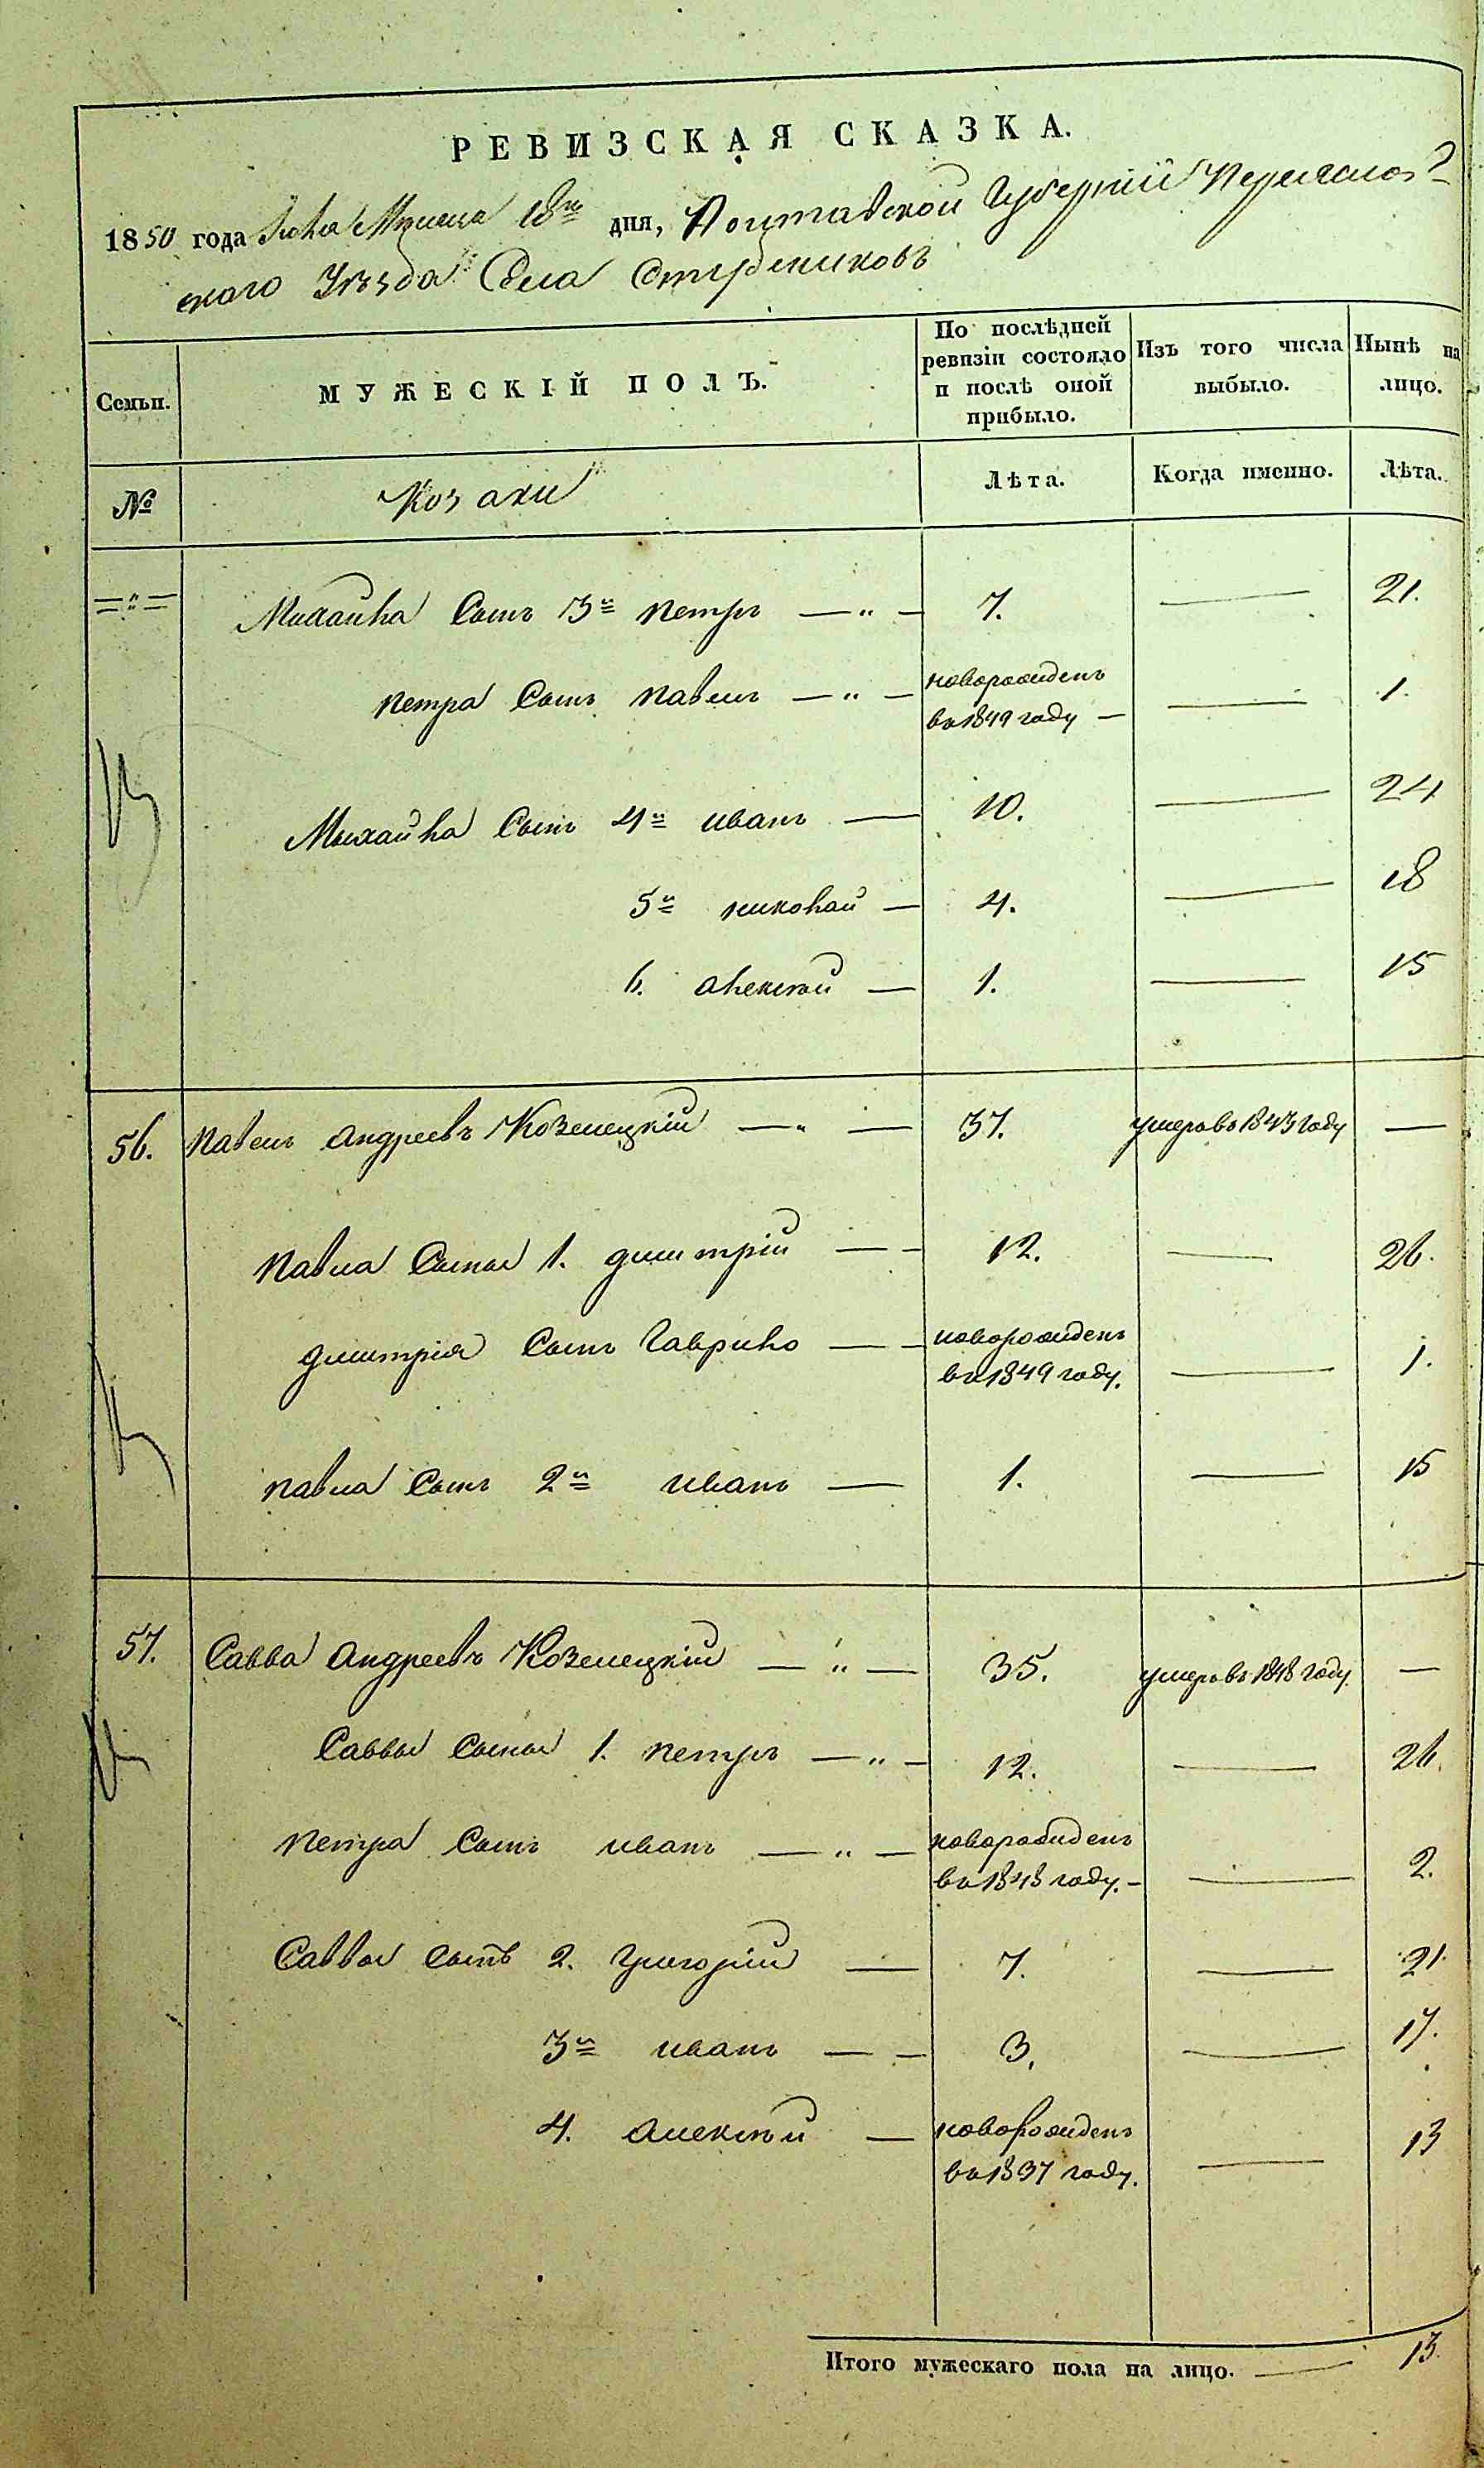 РЕВИЗСКАЯ СКАЗКА.
1850 года Июля Месяца 18го дня, Полтавской Губернии Переяслов
скаго Уѣзда Села Студениковъ
Семьи.
МУЖЕСКІЙ ПОЛЪ.
По послѣдней ревизіи состояло и послѣ оной прибыло.
Изъ того числа выбыло.
Нынѣ на лицо.
№
Козаки
Лѣта.
Когда именно.
Лѣта.
Михайла Сынъ 3й петръ 7. 21.
петра Сынъ павелъ новорожденъ 1.
въ 1849 году
Михайла Сынъ 4й иванъ 10. 24
5й николай 4. 18
6. алексѣй 1. 15
56. павелъ андреевъ Козелецкій 37. умеръ въ 1843 году
павла Сыны 1. дмитрій 12. 26.
дмитрія Сынъ Гаврило новорожденъ 1.
въ 1849 году.
павла Сынъ 2й иванъ 1. 15
57. Савва андреевъ Козелецкій 35. умеръ въ 1848 году.
Саввы Сыны 1. петръ 12. 26.
петра Сынъ иванъ новорожденъ 2.
въ 1848 году.
Саввы Сынъ 2. григорій 7. 21.
3й иванъ 3. 17.
4. алексѣй новорожденъ 13
въ 1837 году.
Итого мужескаго пола на лицо. 13.